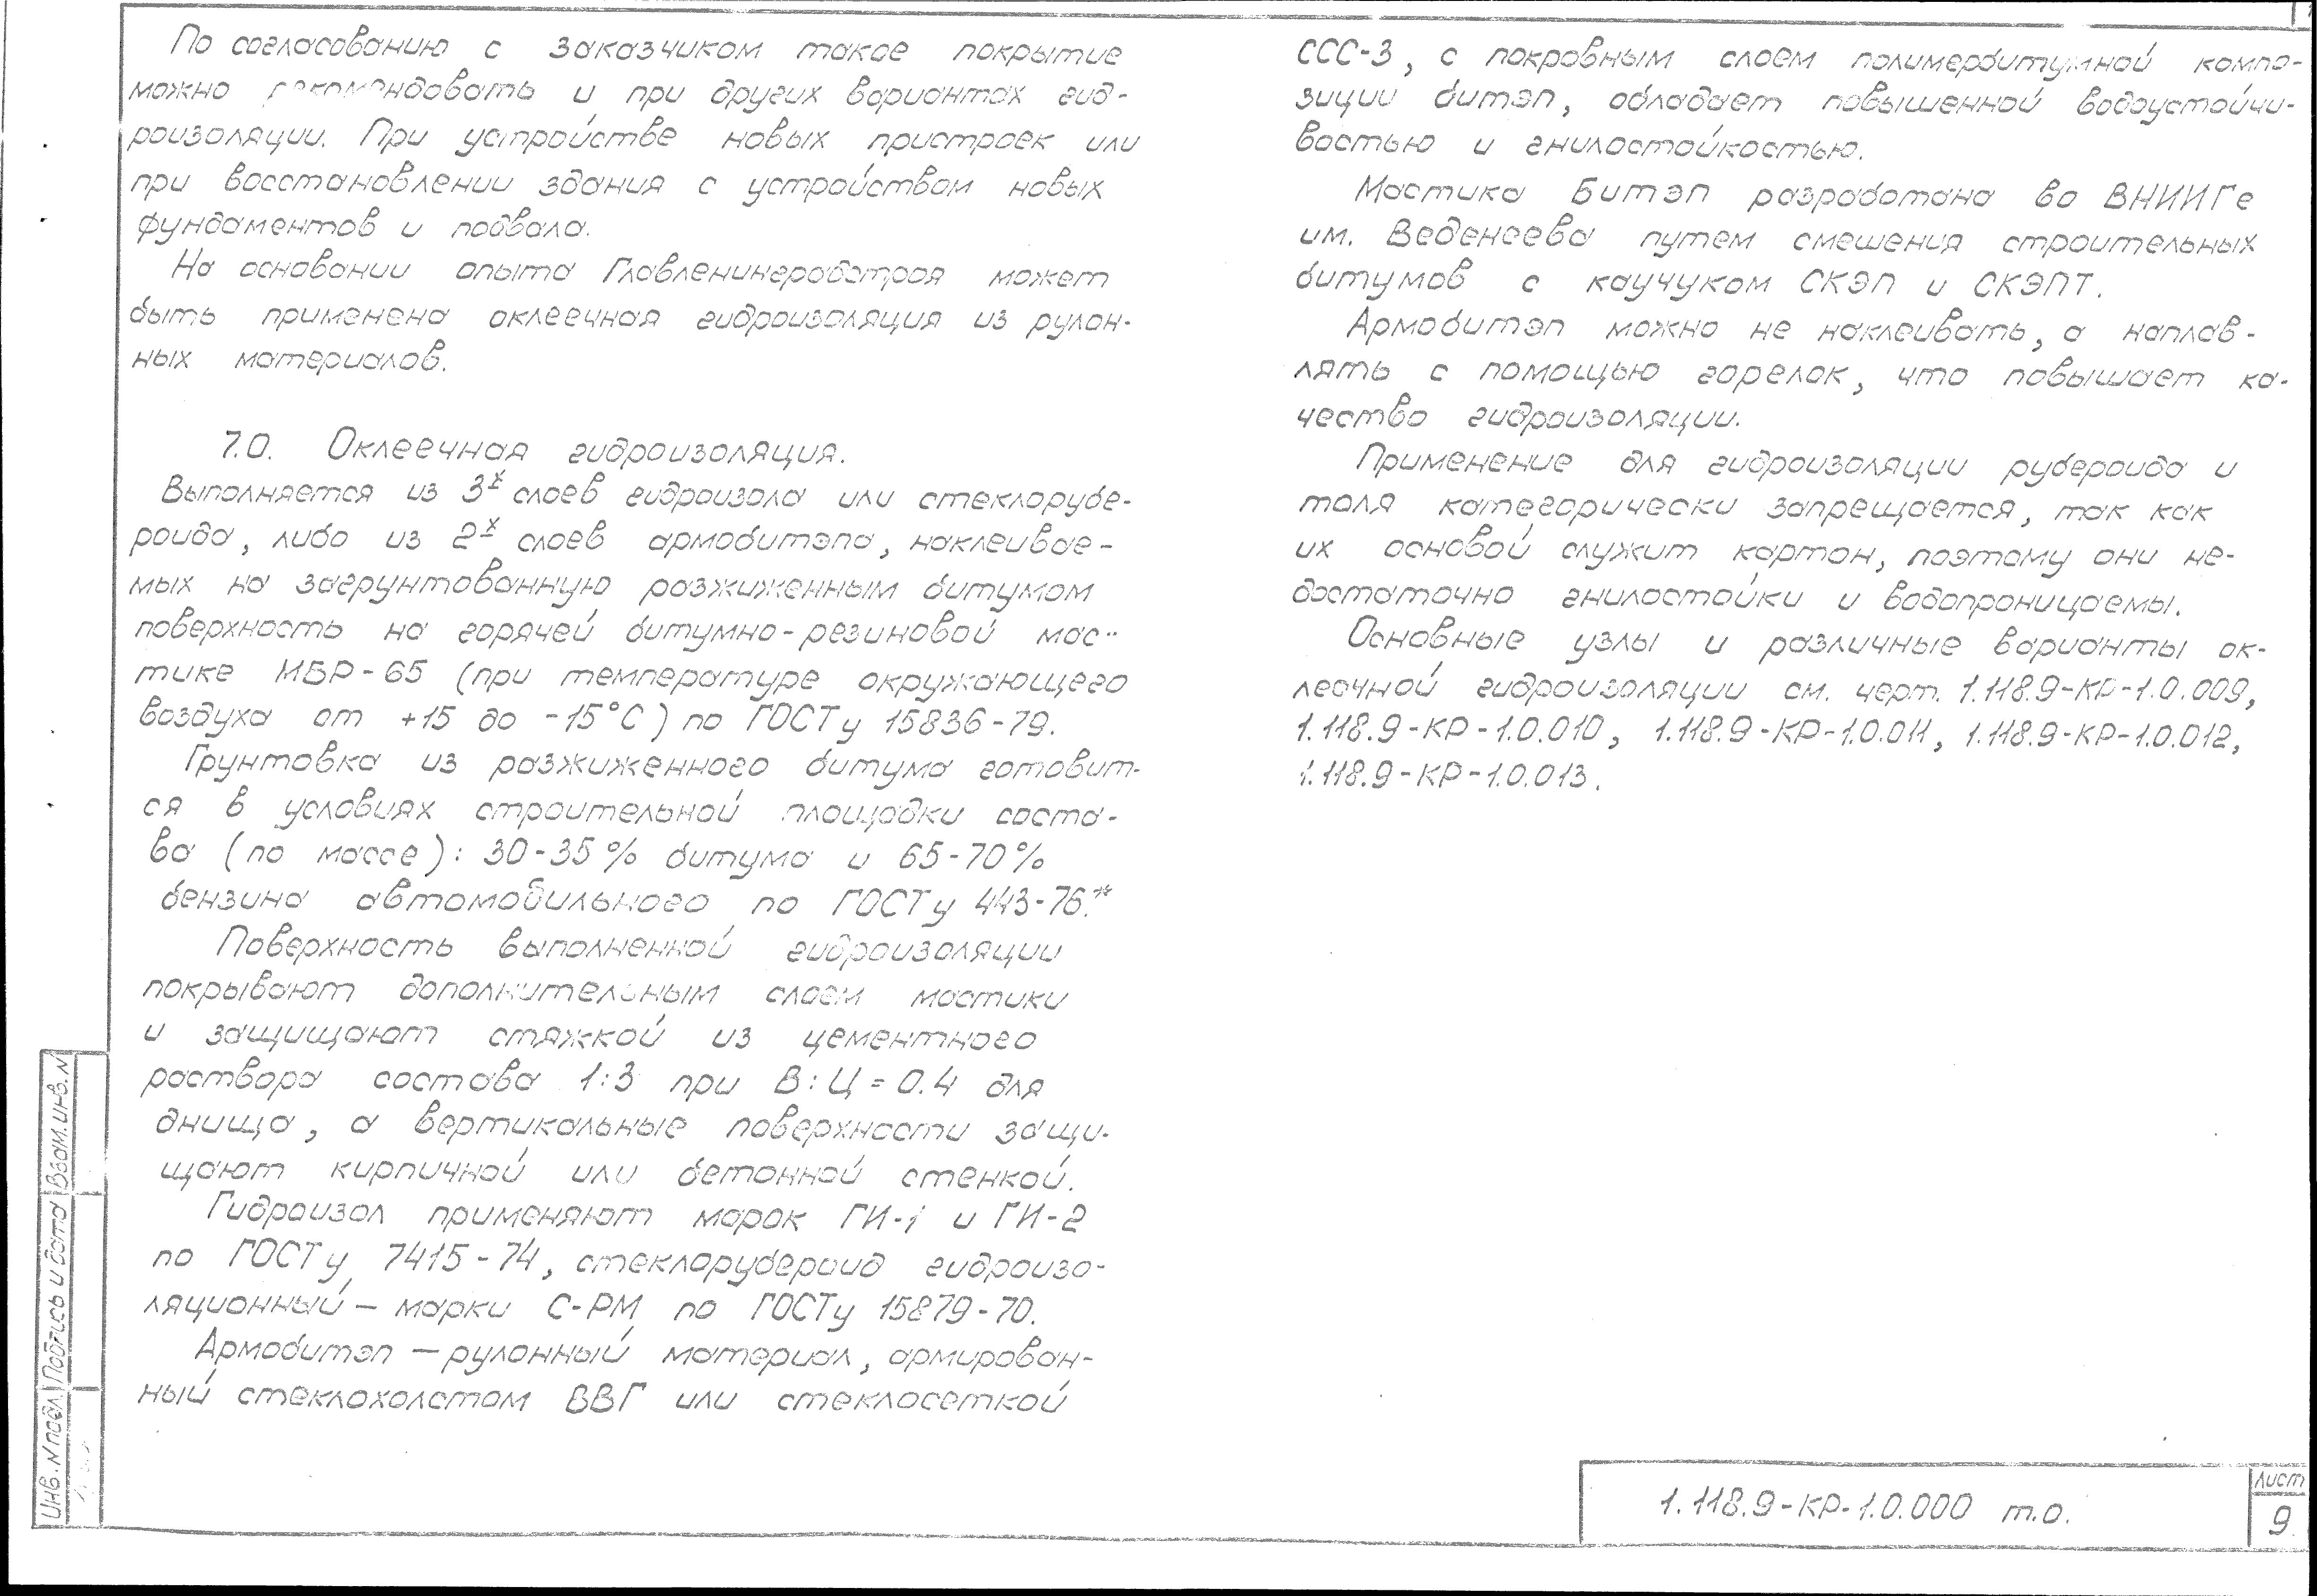 По согласованию с заказчиком такое покрытие
можно рекомендовать и при других вариантах гид-
роизоляции. При устройстве новых пристроек или
при восстановлении здания с устройством новых
фундаментов и подвала.
На основании опыта Главленинградстроя может
быть применена оклеечная гидроизоляция из рулон-
ных материалов.
7.0. Оклеечная гидроизоляция.
Выполняется из 3х слоев гидроизола или стеклорубе-
роида, либо из 2х слоев армобитэпа, наклеивае-
мых на загрунтованную разжиженным битумом
поверхность на горячей битумно-резиновой мас-
тике МБР-65 (при температуре окружающего
воздуха от +15 до -15°С) по ГОСТу 15836-79.
Грунтовка из разжиженного битума готовит-
ся в условиях строительной площадки соста-
ва (по массе): 30-35% битума и 65-70%
бензина автомобильного по ГОСТу 443-76.*
Поверхность выполненной гидроизоляции
покрывают дополнительным слоем мастики
и защищают стяжкой из цементного
раствора состава 1:3 при В:Ц=0.4 для
днища, а вертикальные поверхности защи-
щают кирпичной или бетонной стенкой.
Гидроизол применяют марок ГИ-1 и ГИ-2
по ГОСТу 7415-74, стеклорубероид гидроизо-
ляционный — марки С-РМ по ГОСТу 15879-70.
Армобитэп — рулонный материал, армирован-
ный стеклохолстом ВВГ или стеклосеткой
ССС-3, с покровным слоем полимербитумной компо-
зиции битэп, обладает повышенной водоустойчи-
востью и гнилостойкостью.
Мастика Битэп разработана во ВНИИГе
им. Веденеева путем смешения строительных
битумов с каучуком СКЭП и СКЭПТ.
Армобитэп можно не наклеивать, а наплав-
лять с помощью горелок, что повышает ка-
чество гидроизоляции.
Применение для гидроизоляции рубероида и
толя категорически запрещается, так как
их основой служит картон, поэтому они не-
достаточно гнилостойки и водопроницаемы.
Основные узлы и различные варианты ок-
леечной гидроизоляции см. черт. 1.118.9-КР-1.0.009,
1.118.9-КР-1.0.010, 1.118.9-КР-1.0.011, 1.118.9-КР-1.0.012,
1.118.9-КР-1.0.013.
Инв. N подл. Подпись и дата Взам. инв. N
1.118.9-КР-1.0.000 т.о.
Лист
9